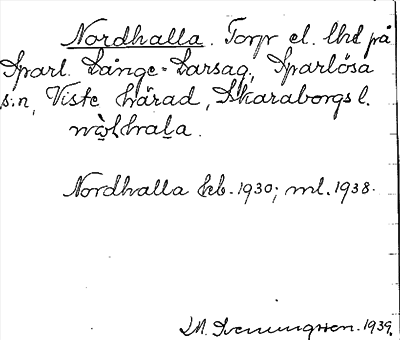 Nordhalla. Torp el. lhl på
Sparl. Långe-Larsag., Sparlösa
s:n, Viste härad, Skaraborgs l.
Nordhalla kb. 1930; ml. 1938.
I.M. Svenungsson. 1939.